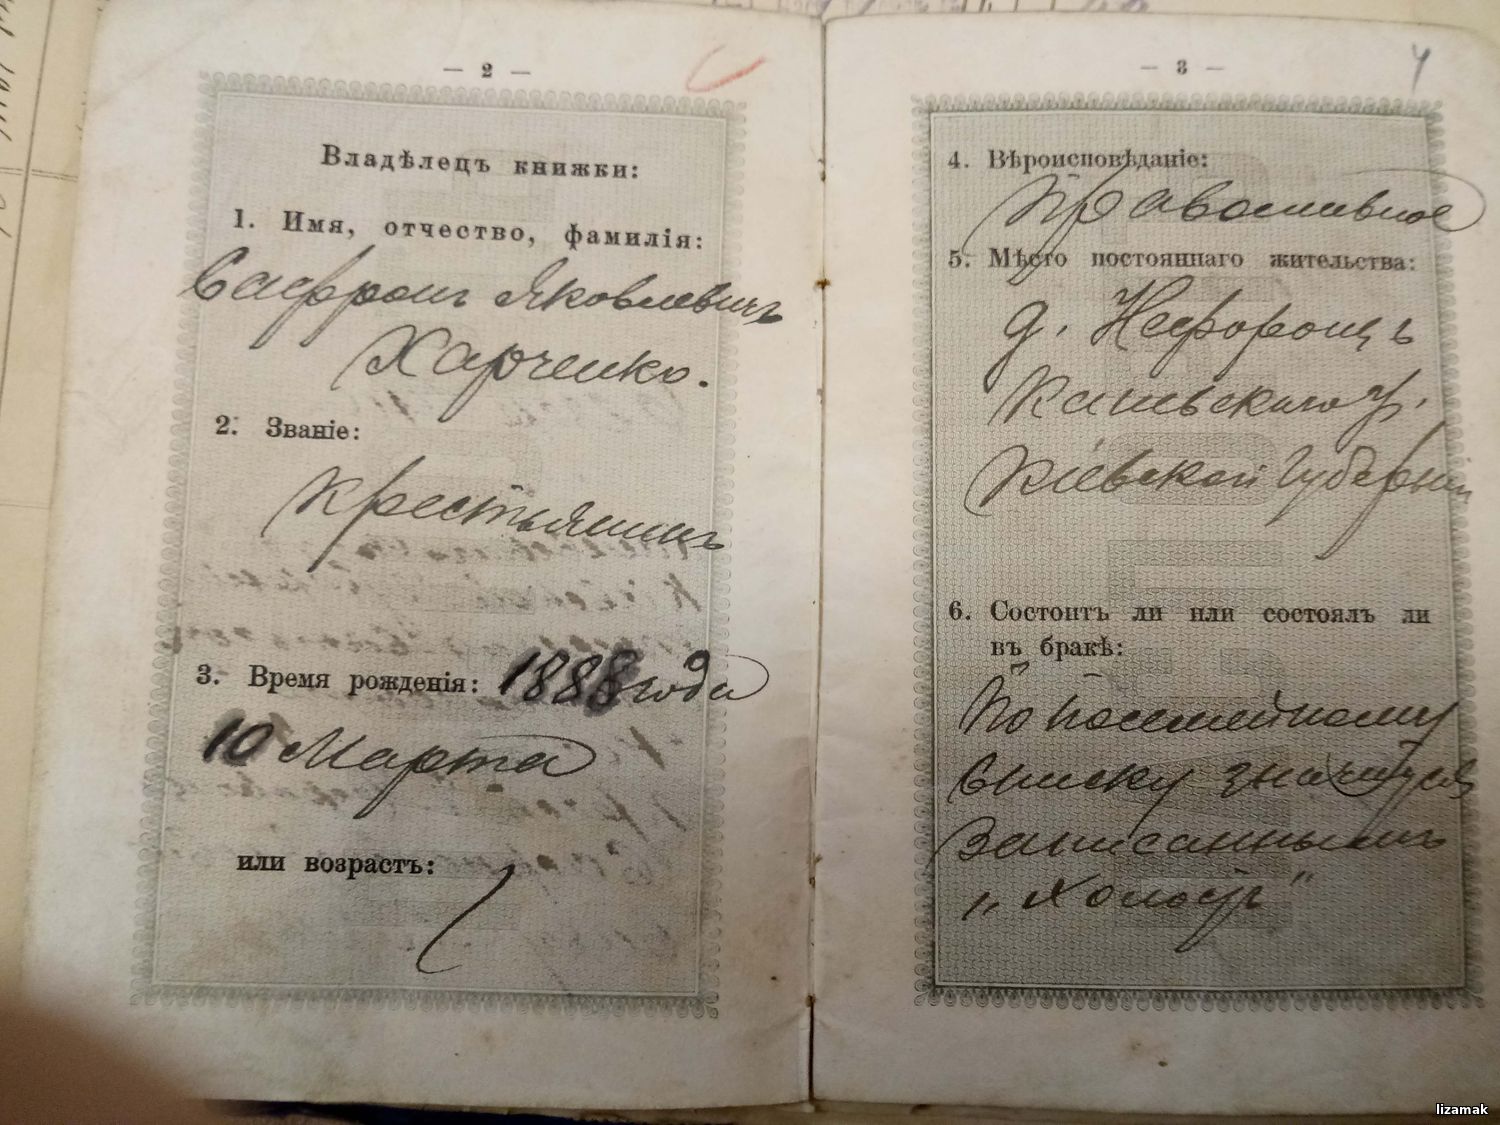 — 2 —
Владѣлецъ книжки:
1. Имя, отчество, фамилія:
Сафронъ Яковлевичъ
Харченко.
2. Званіе:
Крестьянинъ
3. Время рожденія: 1888 года
10 Марта
или возрастъ:
— 3 —
4
4. Вѣроисповѣданіе:
Православное
5. Мѣсто постояннаго жительства:
д. Нефорощъ
Каневскаго у.
Кіевской губерніи
6. Состоитъ ли или состоялъ ли
въ бракѣ:
По посемейному
списку значится
записаннымъ
„Холостъ"
lizamak